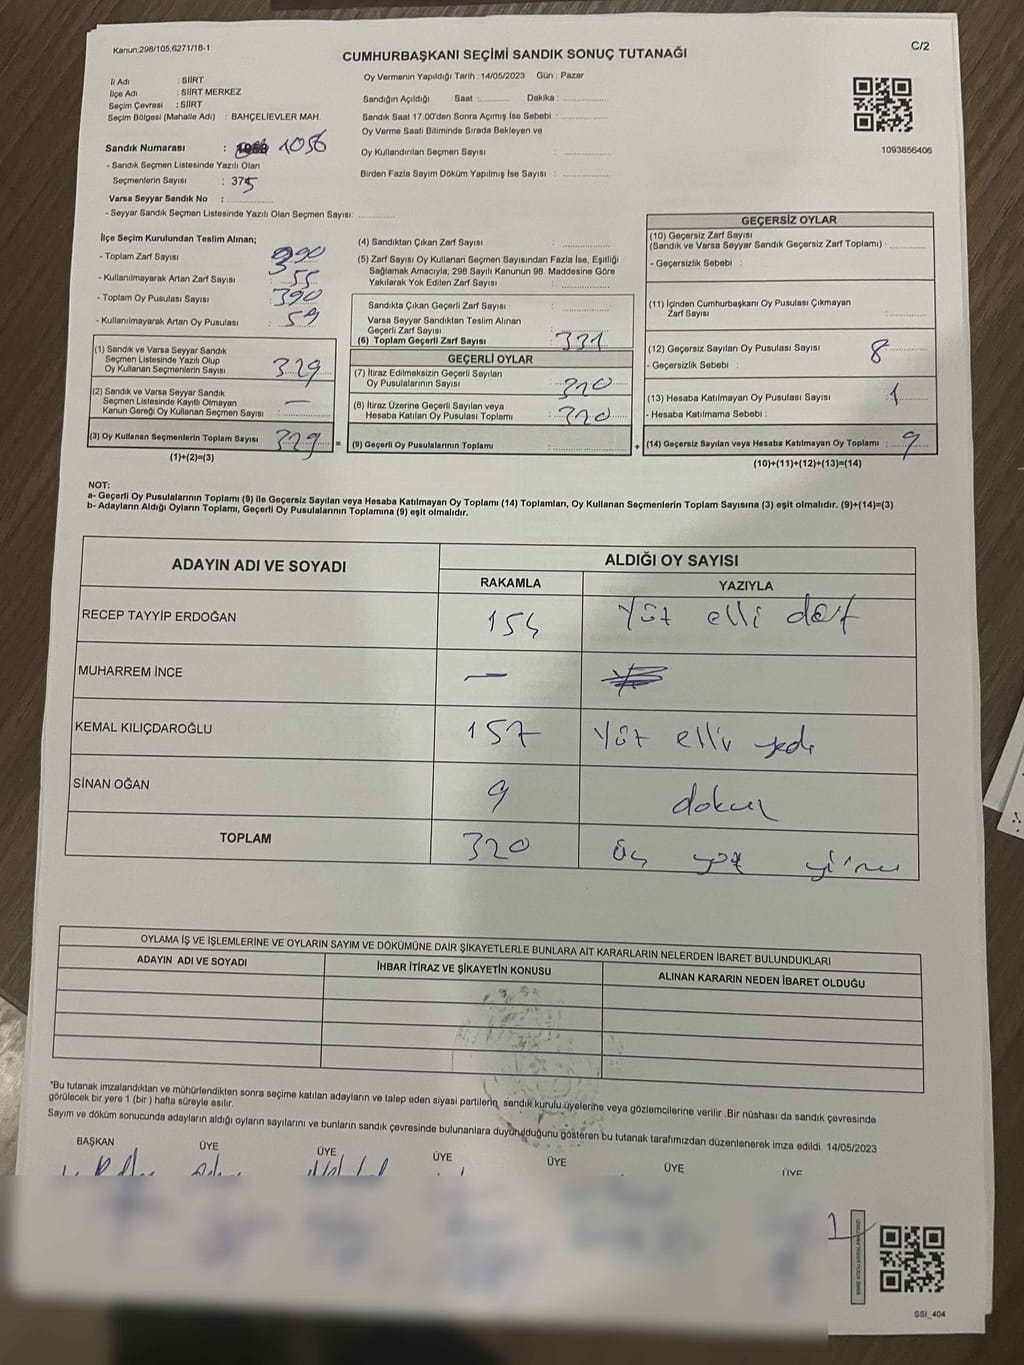 Kanun:298/105,6271/18-1
C/2
CUMHURBAŞKANI SEÇİMİ SANDIK SONUÇ TUTANAĞI
İl Adı : SİİRT
İlçe Adı : SİİRT MERKEZ
Seçim Çevresi : SİİRT
Seçim Bölgesi (Mahalle Adı) : BAHÇELİEVLER MAH.
Sandık Numarası : 1056
- Sandık Seçmen Listesinde Yazılı Olan
Seçmenlerin Sayısı : 375
Varsa Seyyar Sandık No :
- Seyyar Sandık Seçmen Listesinde Yazılı Olan Seçmen Sayısı:
Oy Vermenin Yapıldığı Tarih : 14/05/2023 Gün : Pazar
Sandığın Açıldığı Saat : Dakika :
Sandık Saat 17:00'den Sonra Açımış İse Sebebi :
Oy Verme Saati Bitiminde Sırada Bekleyen ve
Oy Kullandırılan Seçmen Sayısı :
Birden Fazla Sayım Döküm Yapılmış İse Sayısı :
1093856406
İlçe Seçim Kurulundan Teslim Alınan;
- Toplam Zarf Sayısı : 390
- Kullanılmayarak Artan Zarf Sayısı : 55
- Toplam Oy Pusulası Sayısı : 390
- Kullanılmayarak Artan Oy Pusulası : 59
(1) Sandık ve Varsa Seyyar Sandık
Seçmen Listesinde Yazılı Olup
Oy Kullanan Seçmenlerin Sayısı : 329
(2) Sandık ve Varsa Seyyar Sandık
Seçmen Listesinde Kayıtlı Olmayan
Kanun Gereği Oy Kullanan Seçmen Sayısı : —
(3) Oy Kullanan Seçmenlerin Toplam Sayısı : 329 =
(1)+(2)=(3)
(4) Sandıktan Çıkan Zarf Sayısı :
(5) Zarf Sayısı Oy Kullanan Seçmen Sayısından Fazla İse, Eşitliği
Sağlamak Amacıyla; 298 Sayılı Kanunun 98. Maddesine Göre
Yakılarak Yok Edilen Zarf Sayısı :
Sandıkta Çıkan Geçerli Zarf Sayısı :
Varsa Seyyar Sandıktan Teslim Alınan
Geçerli Zarf Sayısı :
(6) Toplam Geçerli Zarf Sayısı : 331
GEÇERLİ OYLAR
(7) İtiraz Edilmeksizin Geçerli Sayılan
Oy Pusulalarının Sayısı : 320
(8) İtiraz Üzerine Geçerli Sayılan veya
Hesaba Katılan Oy Pusulası Toplamı : 320
(9) Geçerli Oy Pusulalarının Toplamı : +
GEÇERSİZ OYLAR
(10) Geçersiz Zarf Sayısı
(Sandık ve Varsa Seyyar Sandık Geçersiz Zarf Toplamı) :
- Geçersizlik Sebebi :
(11) İçinden Cumhurbaşkanı Oy Pusulası Çıkmayan
Zarf Sayısı :
(12) Geçersiz Sayılan Oy Pusulası Sayısı : 8
- Geçersizlik Sebebi :
(13) Hesaba Katılmayan Oy Pusulası Sayısı : 1
- Hesaba Katılmama Sebebi :
(14) Geçersiz Sayılan veya Hesaba Katılmayan Oy Toplamı : 9
(10)+(11)+(12)+(13)=(14)
NOT:
a- Geçerli Oy Pusulalarının Toplamı (9) ile Geçersiz Sayılan veya Hesaba Katılmayan Oy Toplamı (14) Toplamları, Oy Kullanan Seçmenlerin Toplam Sayısına (3) eşit olmalıdır. (9)+(14)=(3)
b- Adayların Aldığı Oyların Toplamı, Geçerli Oy Pusulalarının Toplamına (9) eşit olmalıdır.
ADAYIN ADI VE SOYADI
ALDIĞI OY SAYISI
RAKAMLA YAZIYLA
RECEP TAYYİP ERDOĞAN 154 Yüz elli dört
MUHARREM İNCE —
KEMAL KILIÇDAROĞLU 157 Yüz elli yedi
SİNAN OĞAN 9 dokuz
TOPLAM 320 üç yüz yirmi
OYLAMA İŞ VE İŞLEMLERİNE VE OYLARIN SAYIM VE DÖKÜMÜNE DAİR ŞİKAYETLERLE BUNLARA AİT KARARLARIN NELERDEN İBARET BULUNDUKLARI
ADAYIN ADI VE SOYADI İHBAR İTİRAZ VE ŞİKAYETİN KONUSU ALINAN KARARIN NEDEN İBARET OLDUĞU
*Bu tutanak imzalandıktan ve mühürlendikten sonra seçime katılan adayların ve talep eden siyasi partilerin, sandık kurulu üyelerine veya gözlemcilerine verilir .Bir nüshası da sandık çevresinde
görülecek bir yere 1 (bir ) hafta süreyle asılır.
Sayım ve döküm sonucunda adayların aldığı oyların sayılarını ve bunların sandık çevresinde bulunanlara duyurulduğunu gösteren bu tutanak tarafımızdan düzenlenerek imza edildi. 14/05/2023
BAŞKAN ÜYE ÜYE ÜYE ÜYE ÜYE ÜYE
1
SSI_404